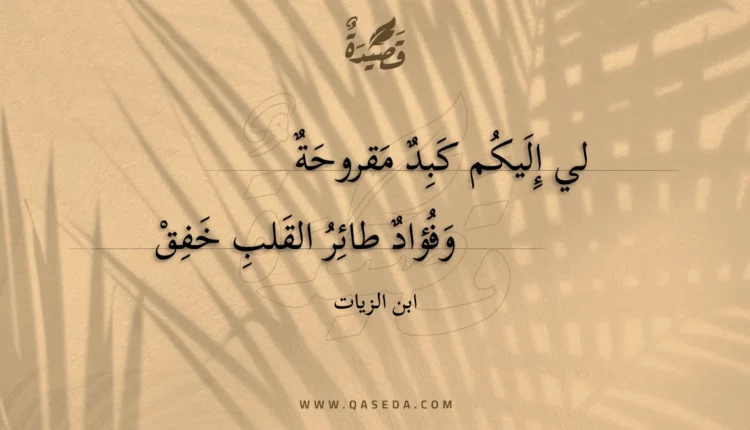 قَصِيْدَةٌ
لي إِلَيكُم كَبِدٌ مَقروحَةٌ
وَفُؤادٌ طائِرُ القَلبِ خَفِقْ
ابن الزيات
WWW.QASEDA.COM